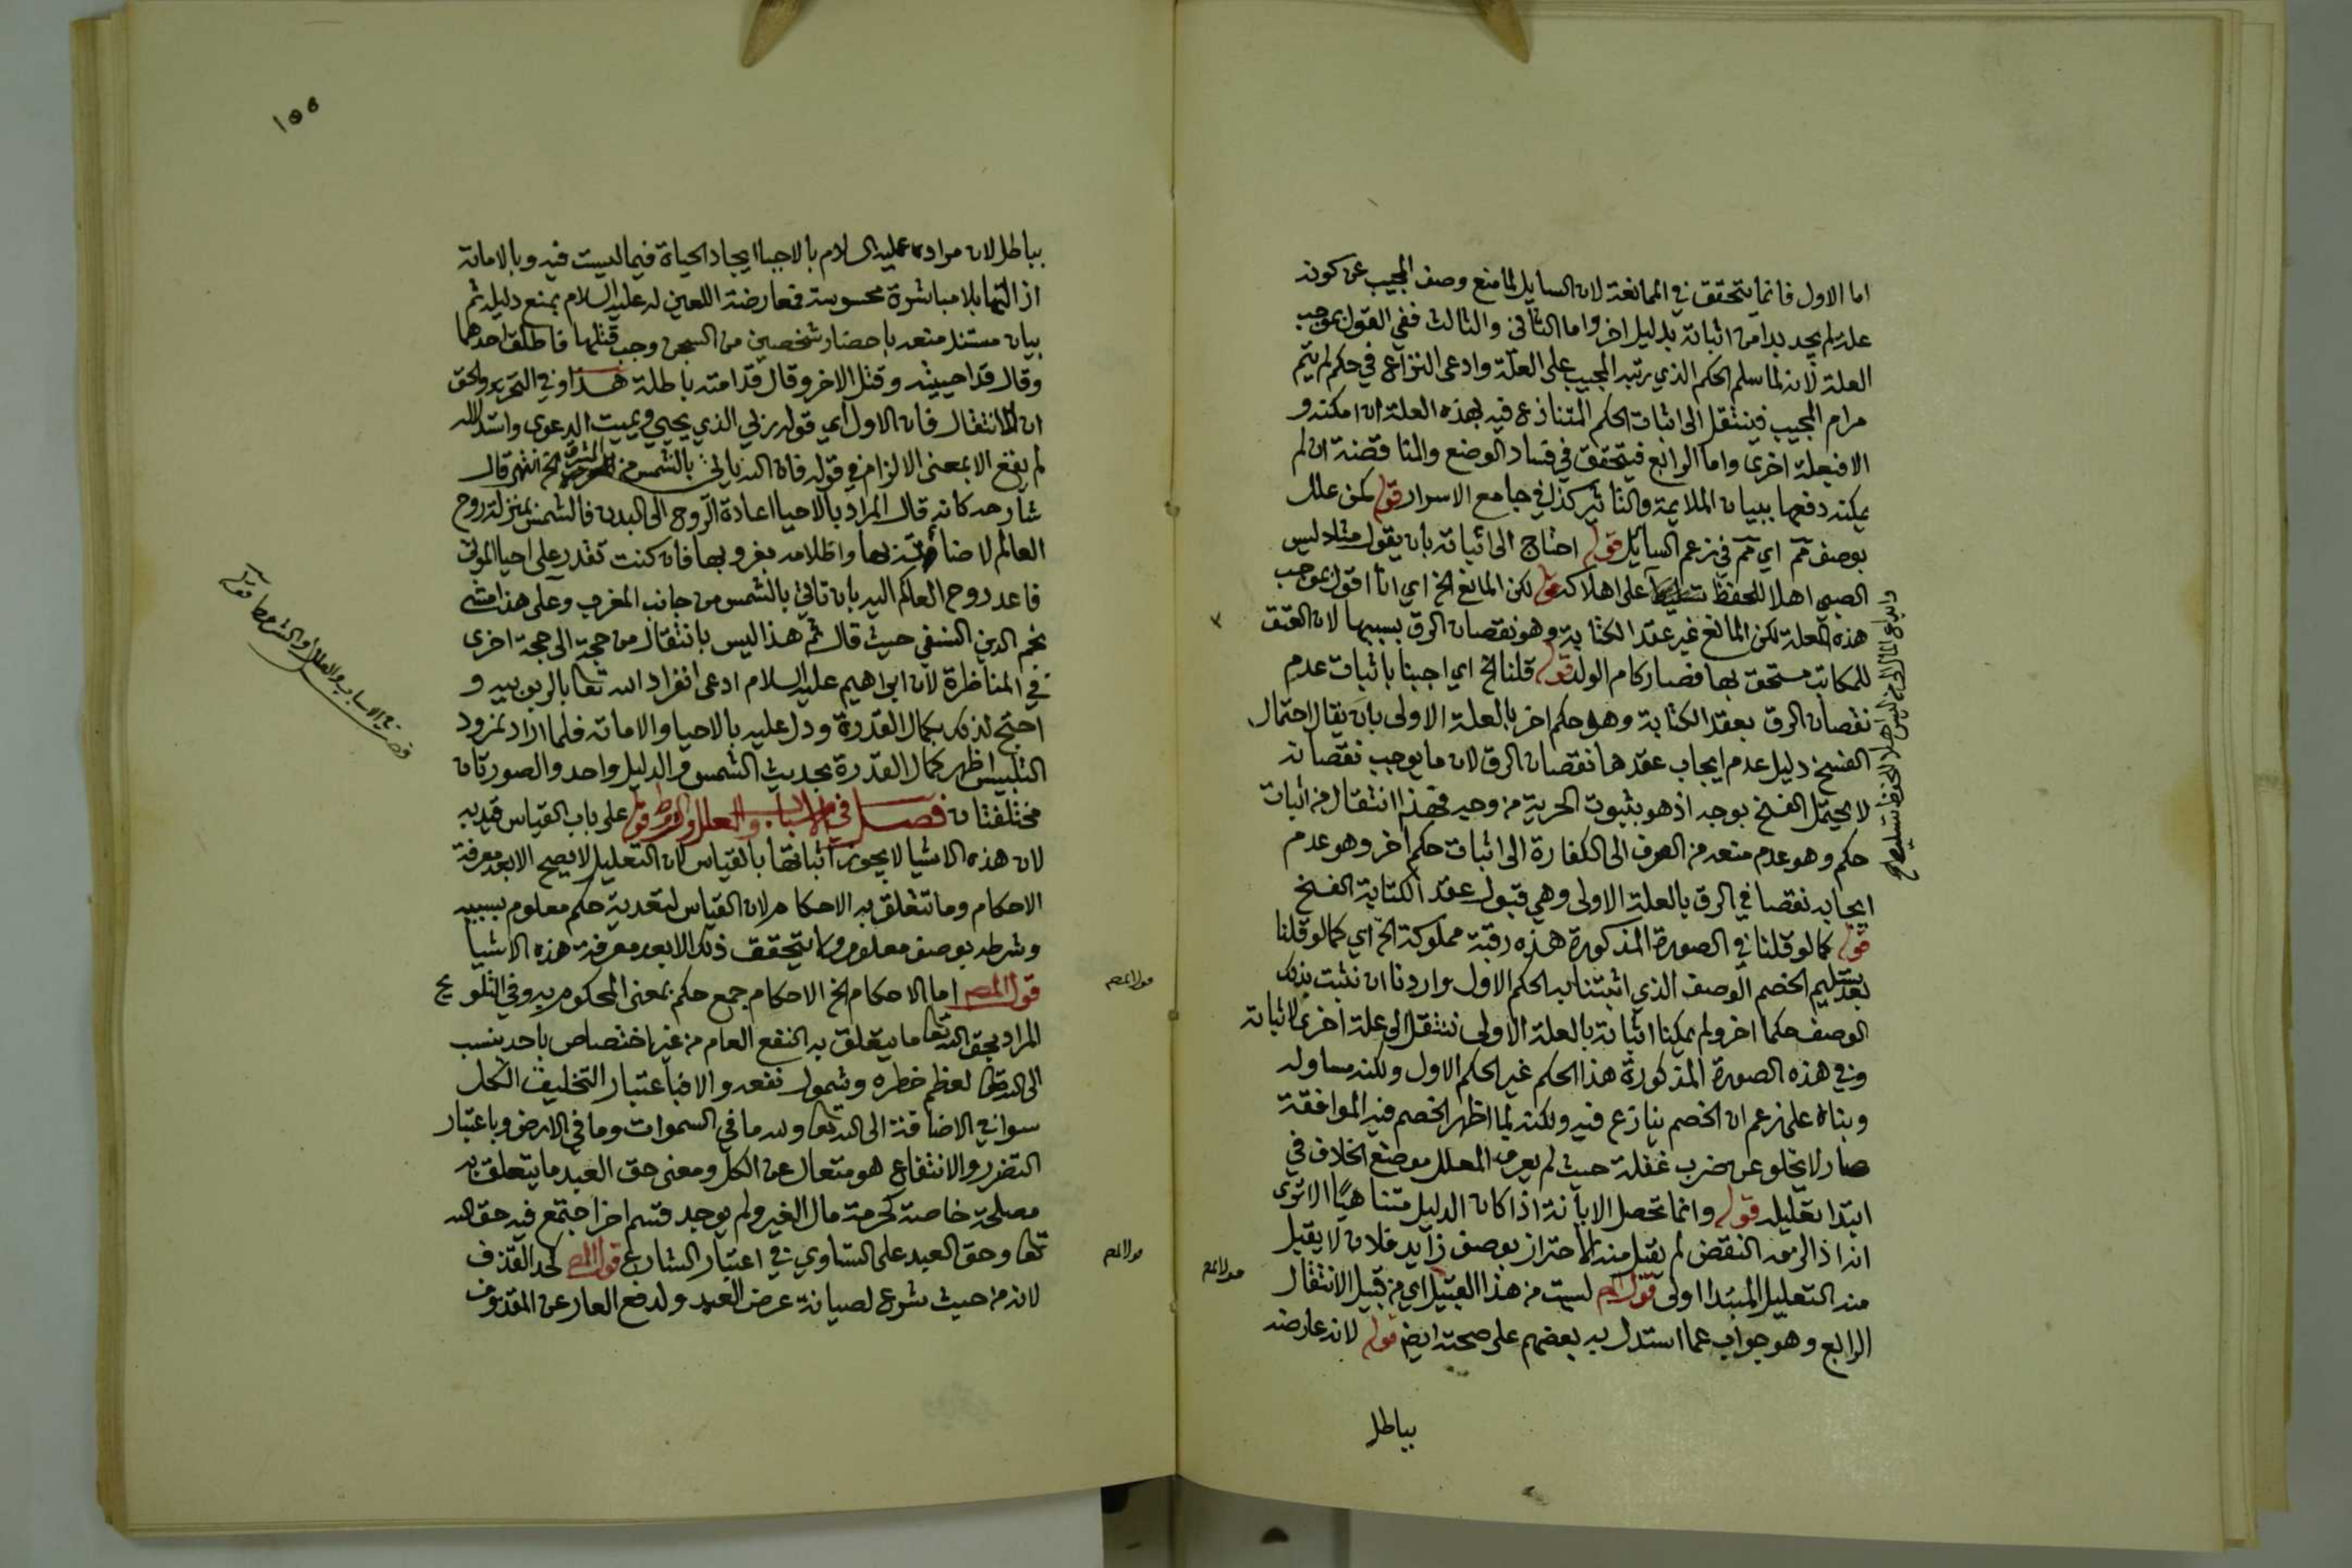 اما الاول فانما يتحقق في الممانعة لان السايل لما منع وصف المجيب عن كونه
علة لم يجد بدا من اثباته بدليل اخر واما الثاني والثالث ففي القول بموجب
العلة لانه لما سلم الحكم الذي رتبه المجيب على العلة وادعى النزاع في حكم لم يتم
مرام المجيب فينتقل الى اثبات الحكم المتنازع فيه بهذه العلة ان امكنه و
الا فبعلة اخرى واما الرابع فيتحقق في فساد الوضع والمناقضة ان لم
يمكنه دفعها ببيان الملايمة والتاثير كذا في جامع الاسرار قوله كمن علل
بوصف مم اي مم في زعم السايل قوله احتاج الى اثباته بان يقول مثلا ليس
الصبي اهلا للحفظ على اهلاكه قوله لكن المانع الخ اي انا اقول بموجب
هذه العلة لكن المانع غير عقد الكتابة وهو نقصان الرق بسببها لان العتق
للمكاتب مستحق بها فصار كام الولد قوله قلنا الخ اي اجبنا باثبات عدم
نقصان الرق بعقد الكتابة وهو حكم اخر بالعلة الاولى بان يقال احتمال
الفسخ دليل عدم ايجاب عقدها نقصان الرق لان ما يوجب نقصانه
لا يحتمل الفسخ بوجه اذ هو بثبوت الحرية من وجه فهذا انتقال من اثبات
حكم وهو عدم منعه من الصرف الى الكفارة الى اثبات حكم اخر وهو عدم
ايجابه نقصا في الرق بالعلة الاولى وهي قبول عقد الكتابة الفسخ
قوله كما لو قلنا في الصورة المذكورة هذه رقبة مملوكة الخ اي كما لو قلنا
بعد تسليم الخصم الوصف الذي اثبتنا به الحكم الاول واردنا ان نثبت بذلك
الوصف حكما اخر ولم يمكنا اثباته بالعلة الاولى ننتقل الى علة اخرى لاثباته
وفي هذه الصورة المذكورة هذا الحكم غير الحكم الاول ولكنه مساو له
وبناه على زعم ان الخصم ينازع فيه ولكنه لما اظهر الخصم فيه الموافقة
صار لا يخلو عن ضرب غفلة حيث لم يعرف المعلل موضع الخلاف في
ابتدا تعليله قوله وانما تحصل الابانة اذا كان الدليل متناهيًا الا ترى
انه اذا لزمه النقض لم يقبل منه الاحتراز بوصف زايد فلان لا يقبل
منه التعليل المبتدا اولى قول المص ليست من هذا القبيل اي من قبيل الانتقال
الرابع وهو جواب عما استدل به بعضهم على صحته ايض قوله لانه عارضه
بباطل
وايداع المال الى من ليس اهلا للحفظ تسليط
قول المص
١٥٥
بباطل لان مراده عليه السلام بالاحيا ايجاد الحياة فيما ليست فيه وبالاماتة
ازالتها بلا مباشرة محسوسة فمعارضة اللعين له عليه السلام بمنع دليله ثم
بيان مستند منعه باحضار شخصين من السجن وجب قتلهما فاطلق احدهما
وقال قد احييته وقتل الاخر وقال قد امته باطلة هذا وفي التحرير والحق
ان لا انتقال فان الاول اي قوله ربي الذي يحيي ويميت الدعوى واستدلاله
لم يقع الا بمعنى الالزام في قوله فان الله ياتي بالشمس من المشرق الخ انتهى قال
شارحه كانه قال المراد بالاحيا اعادة الروح الى البدن فالشمس بمنزلة روح
العالم لاضائته بها واظلامه بغروبها فان كنت تقدر على احيا الموتى
فاعد روح العالم اليه بان تاتي بالشمس من جانب المغرب وعلى هذا مشى
نجم الدين النسفي حيث قال ثم هذا ليس بانتقال من حجة الى حجة اخرى
في المناظرة لان ابراهيم عليه السلام ادعى انفراد الله تعا بالربوبيه و
احتج لذلك بكمال القدرة ودل عليه بالاحيا والاماتة فلما اراد نمرود
التلبيس اظهر كمال القدرة بحديث الشمس والدليل واحد والصورتان
مختلفتان فصل في الاسباب والعلل والشرط قوله على باب القياس قيد به
لان هذه الاشيا لا يجوز اثباتها بالقياس لان التعليل لا يصح الا بعد معرفة
الاحكام وما تتعلق به الاحكام لان القياس لتعدية حكم معلوم بسببه
وشرطه بوصف معلوم ولا يتحقق ذلك الا بعد معرفة هذه الاشيا
قول المص اما الاحكام الخ الاحكام جمع حكم بمعنى المحكوم به وفي التلويح
المراد بحق الله تعا ما يتعلق به النفع العام من غير اختصاص باحد ينسب
الى الله تعا لعظم خطره وشمول نفعه والا فباعتبار التخليق الكل
سوا في الاضافة الى الله تعا ولله ما في السموات وما في الارض وباعتبار
التضرر والانتفاع هو متعال عن الكل ومعنى حق العبد ما يتعلق به
مصلحة خاصة كحرمة مال الغير ولم يوجد قسم اخر اجتمع فيه حق الله
تعا وحق العبد على التساوي في اعتبار الشارع قول المص كحد القذف
لانه من حيث شرع لصيانة عرض العبد ولدفع العار عن المقذوف
قول المص
قول المص
فصل في الاسباب والعلل والشرط